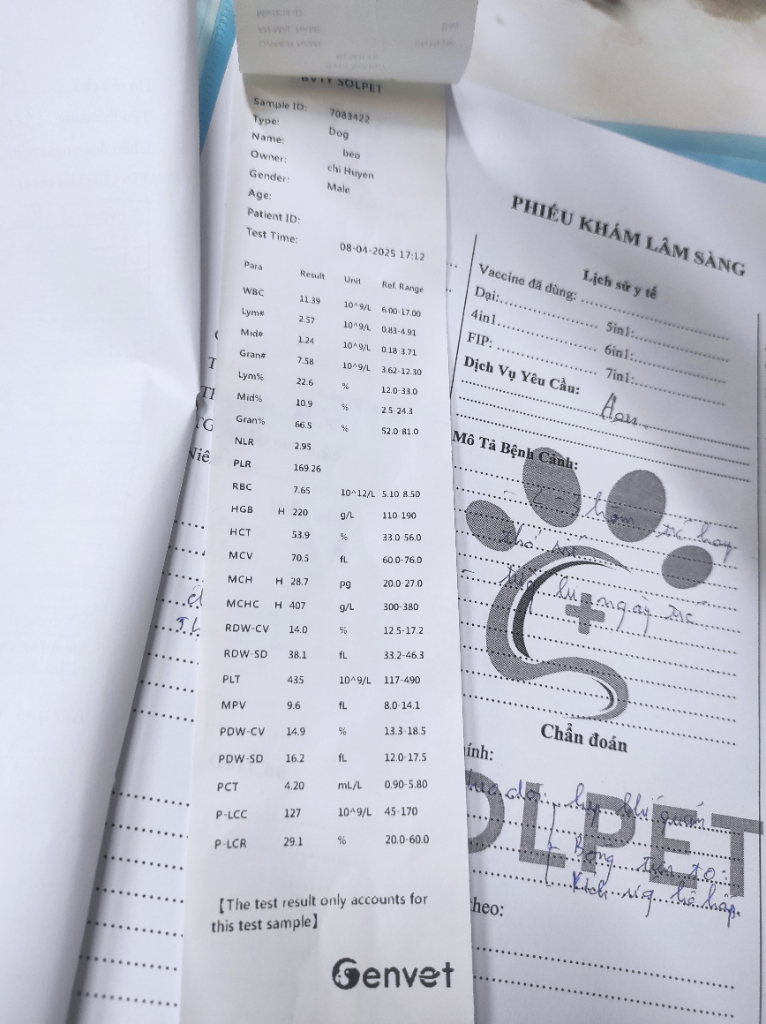 BVTY SOLPET
Sample ID: 7083422
Type: Dog
Name: beo
Owner: chi Huyen
Gender: Male
Age:
Patient ID:
Test Time: 08-04-2025 17:12
Para Result Unit Ref. Range
WBC 11.39 10^9/L 6.00-17.00
Lym# 2.57 10^9/L 0.83-4.91
Mid# 1.24 10^9/L 0.18-3.71
Gran# 7.58 10^9/L 3.62-12.30
Lym% 22.6 % 12.0-33.0
Mid% 10.9 % 2.5-24.3
Gran% 66.5 % 52.0-81.0
NLR 2.95
PLR 169.26
RBC 7.65 10^12/L 5.10-8.50
HGB H 220 g/L 110-190
HCT 53.9 % 33.0-56.0
MCV 70.5 fL 60.0-76.0
MCH H 28.7 pg 20.0-27.0
MCHC H 407 g/L 300-380
RDW-CV 14.0 % 12.5-17.2
RDW-SD 38.1 fL 33.2-46.3
PLT 435 10^9/L 117-490
MPV 9.6 fL 8.0-14.1
PDW-CV 14.9 % 13.3-18.5
PDW-SD 16.2 fL 12.0-17.5
PCT 4.20 mL/L 0.90-5.80
P-LCC 127 10^9/L 45-170
P-LCR 29.1 % 20.0-60.0
【The test result only accounts for
this test sample】
Genvet
PHIẾU KHÁM LÂM SÀNG
Lịch sử y tế
Vaccine đã dùng:
Dại: 5in1:
4in1 6in1:
FIP: 7in1:
Dịch Vụ Yêu Cầu:
Mô Tả Bệnh Cảnh:
Chẩn đoán
ính:
OLPET
heo: